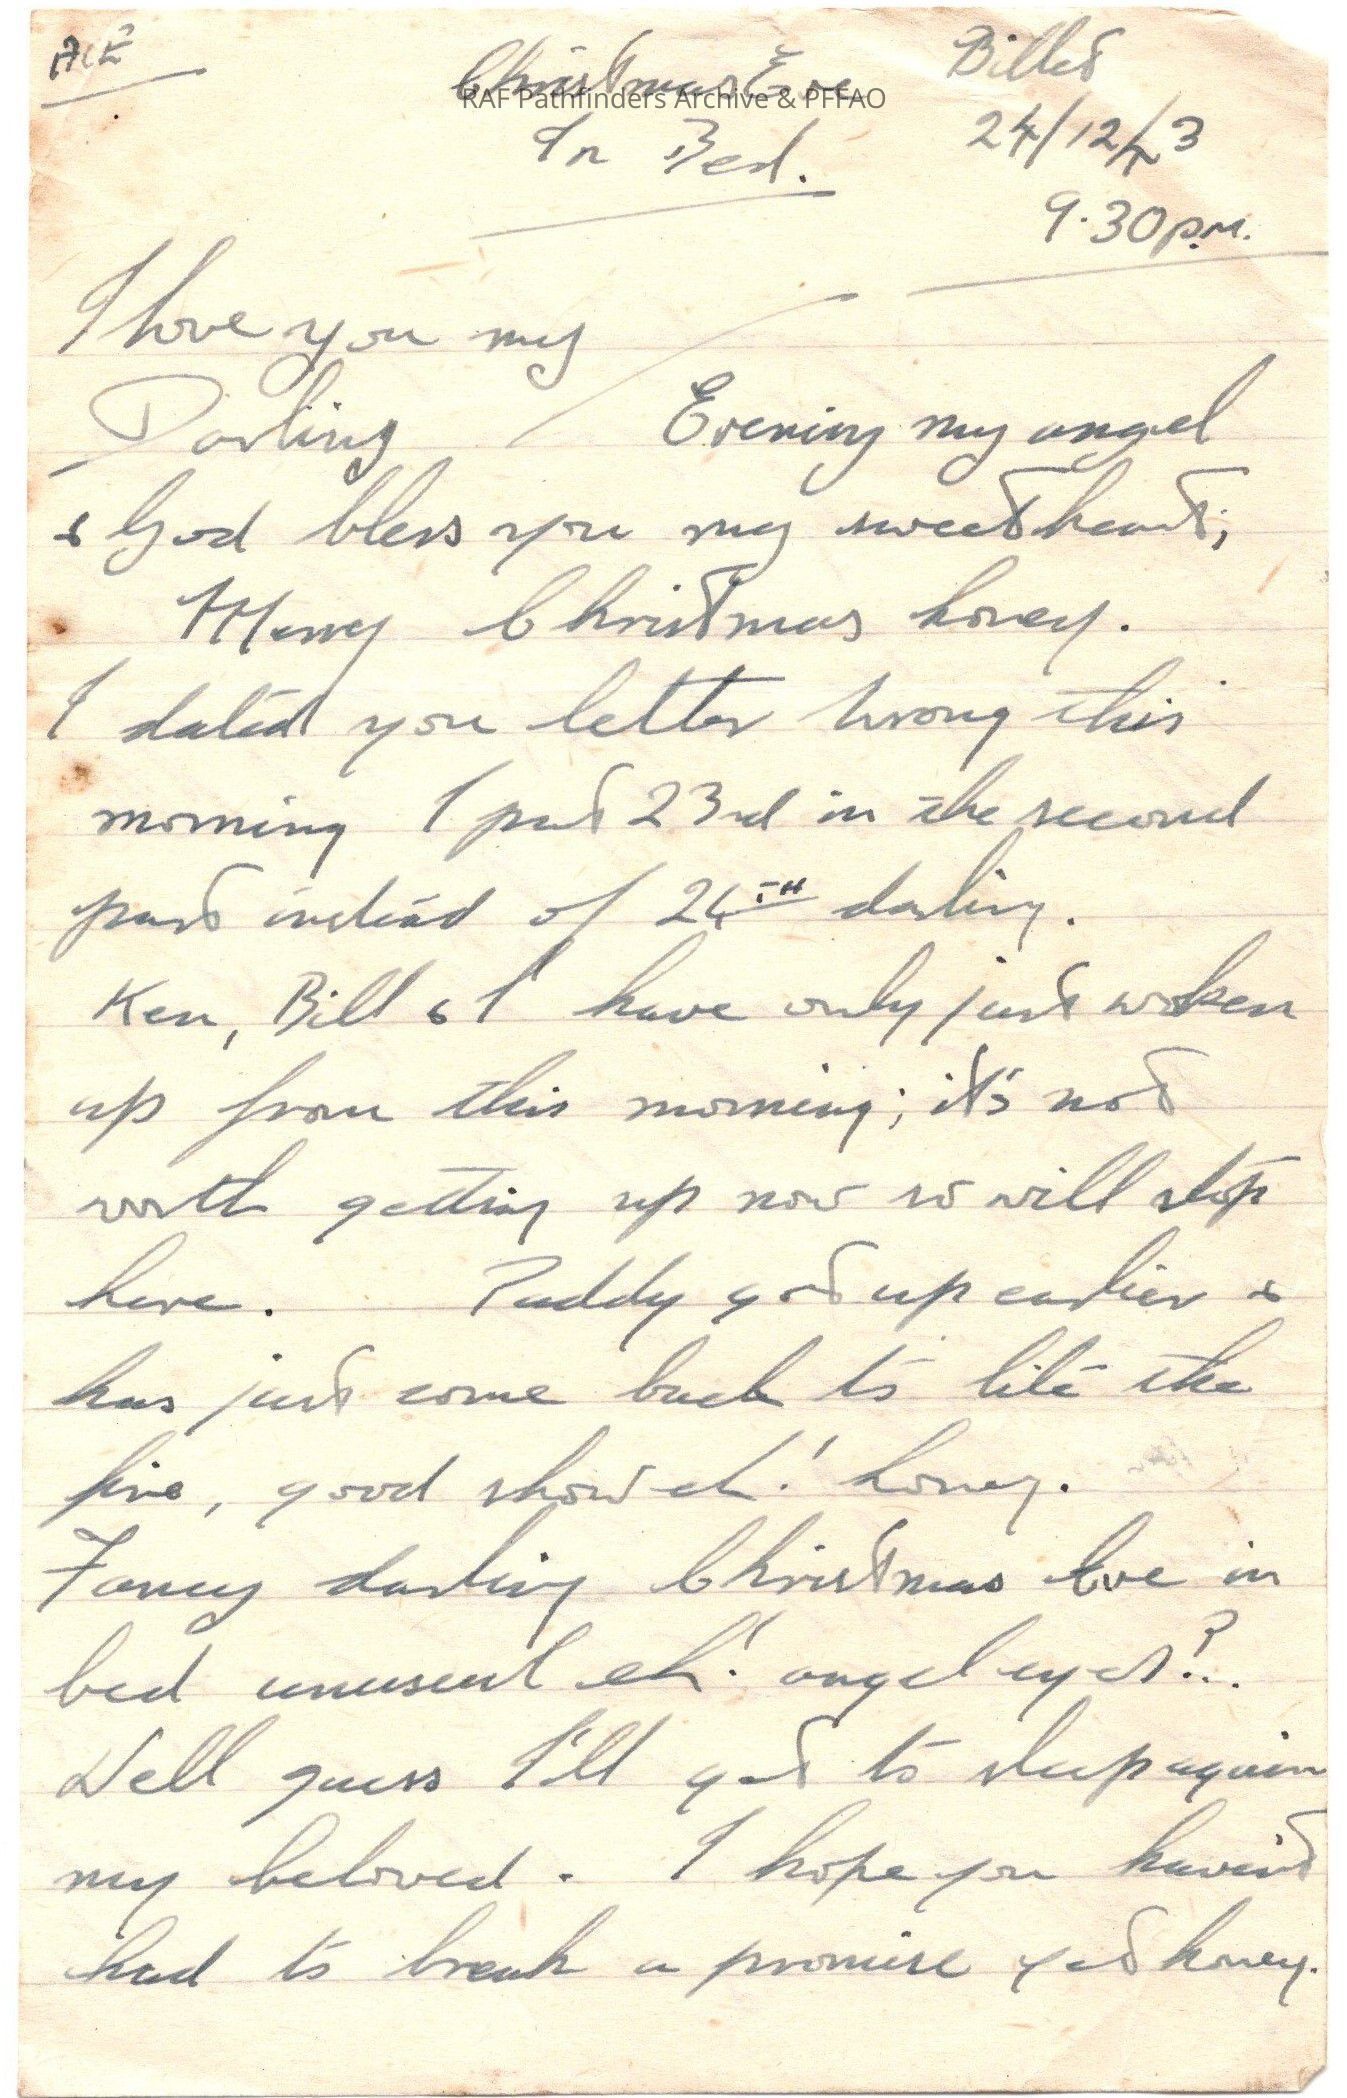 Christmas Eve
Billet
RAF Pathfinders Archive & PFFAO
In Bed.
24/12/43
9.30 P.M.
I love you my
Darling
Evening my angel
& God bless you my sweetheart;
Merry Christmas honey.
I dated you letter wrong this
morning I put 23rd in the second
part instead of 24TH darling.
Ken, Bill & I have only just woken
up from this morning; it's not
worth getting up now so will stop
here. Paddy got up earlier &
has just come back to lite the
fire, good show eh! honey.
Fancy darling Christmas Eve in
bed unusual eh! angel eyes?..
Well guess I'll get to sleep again
my beloved. I hope you havent
had to break a promise yet honey.